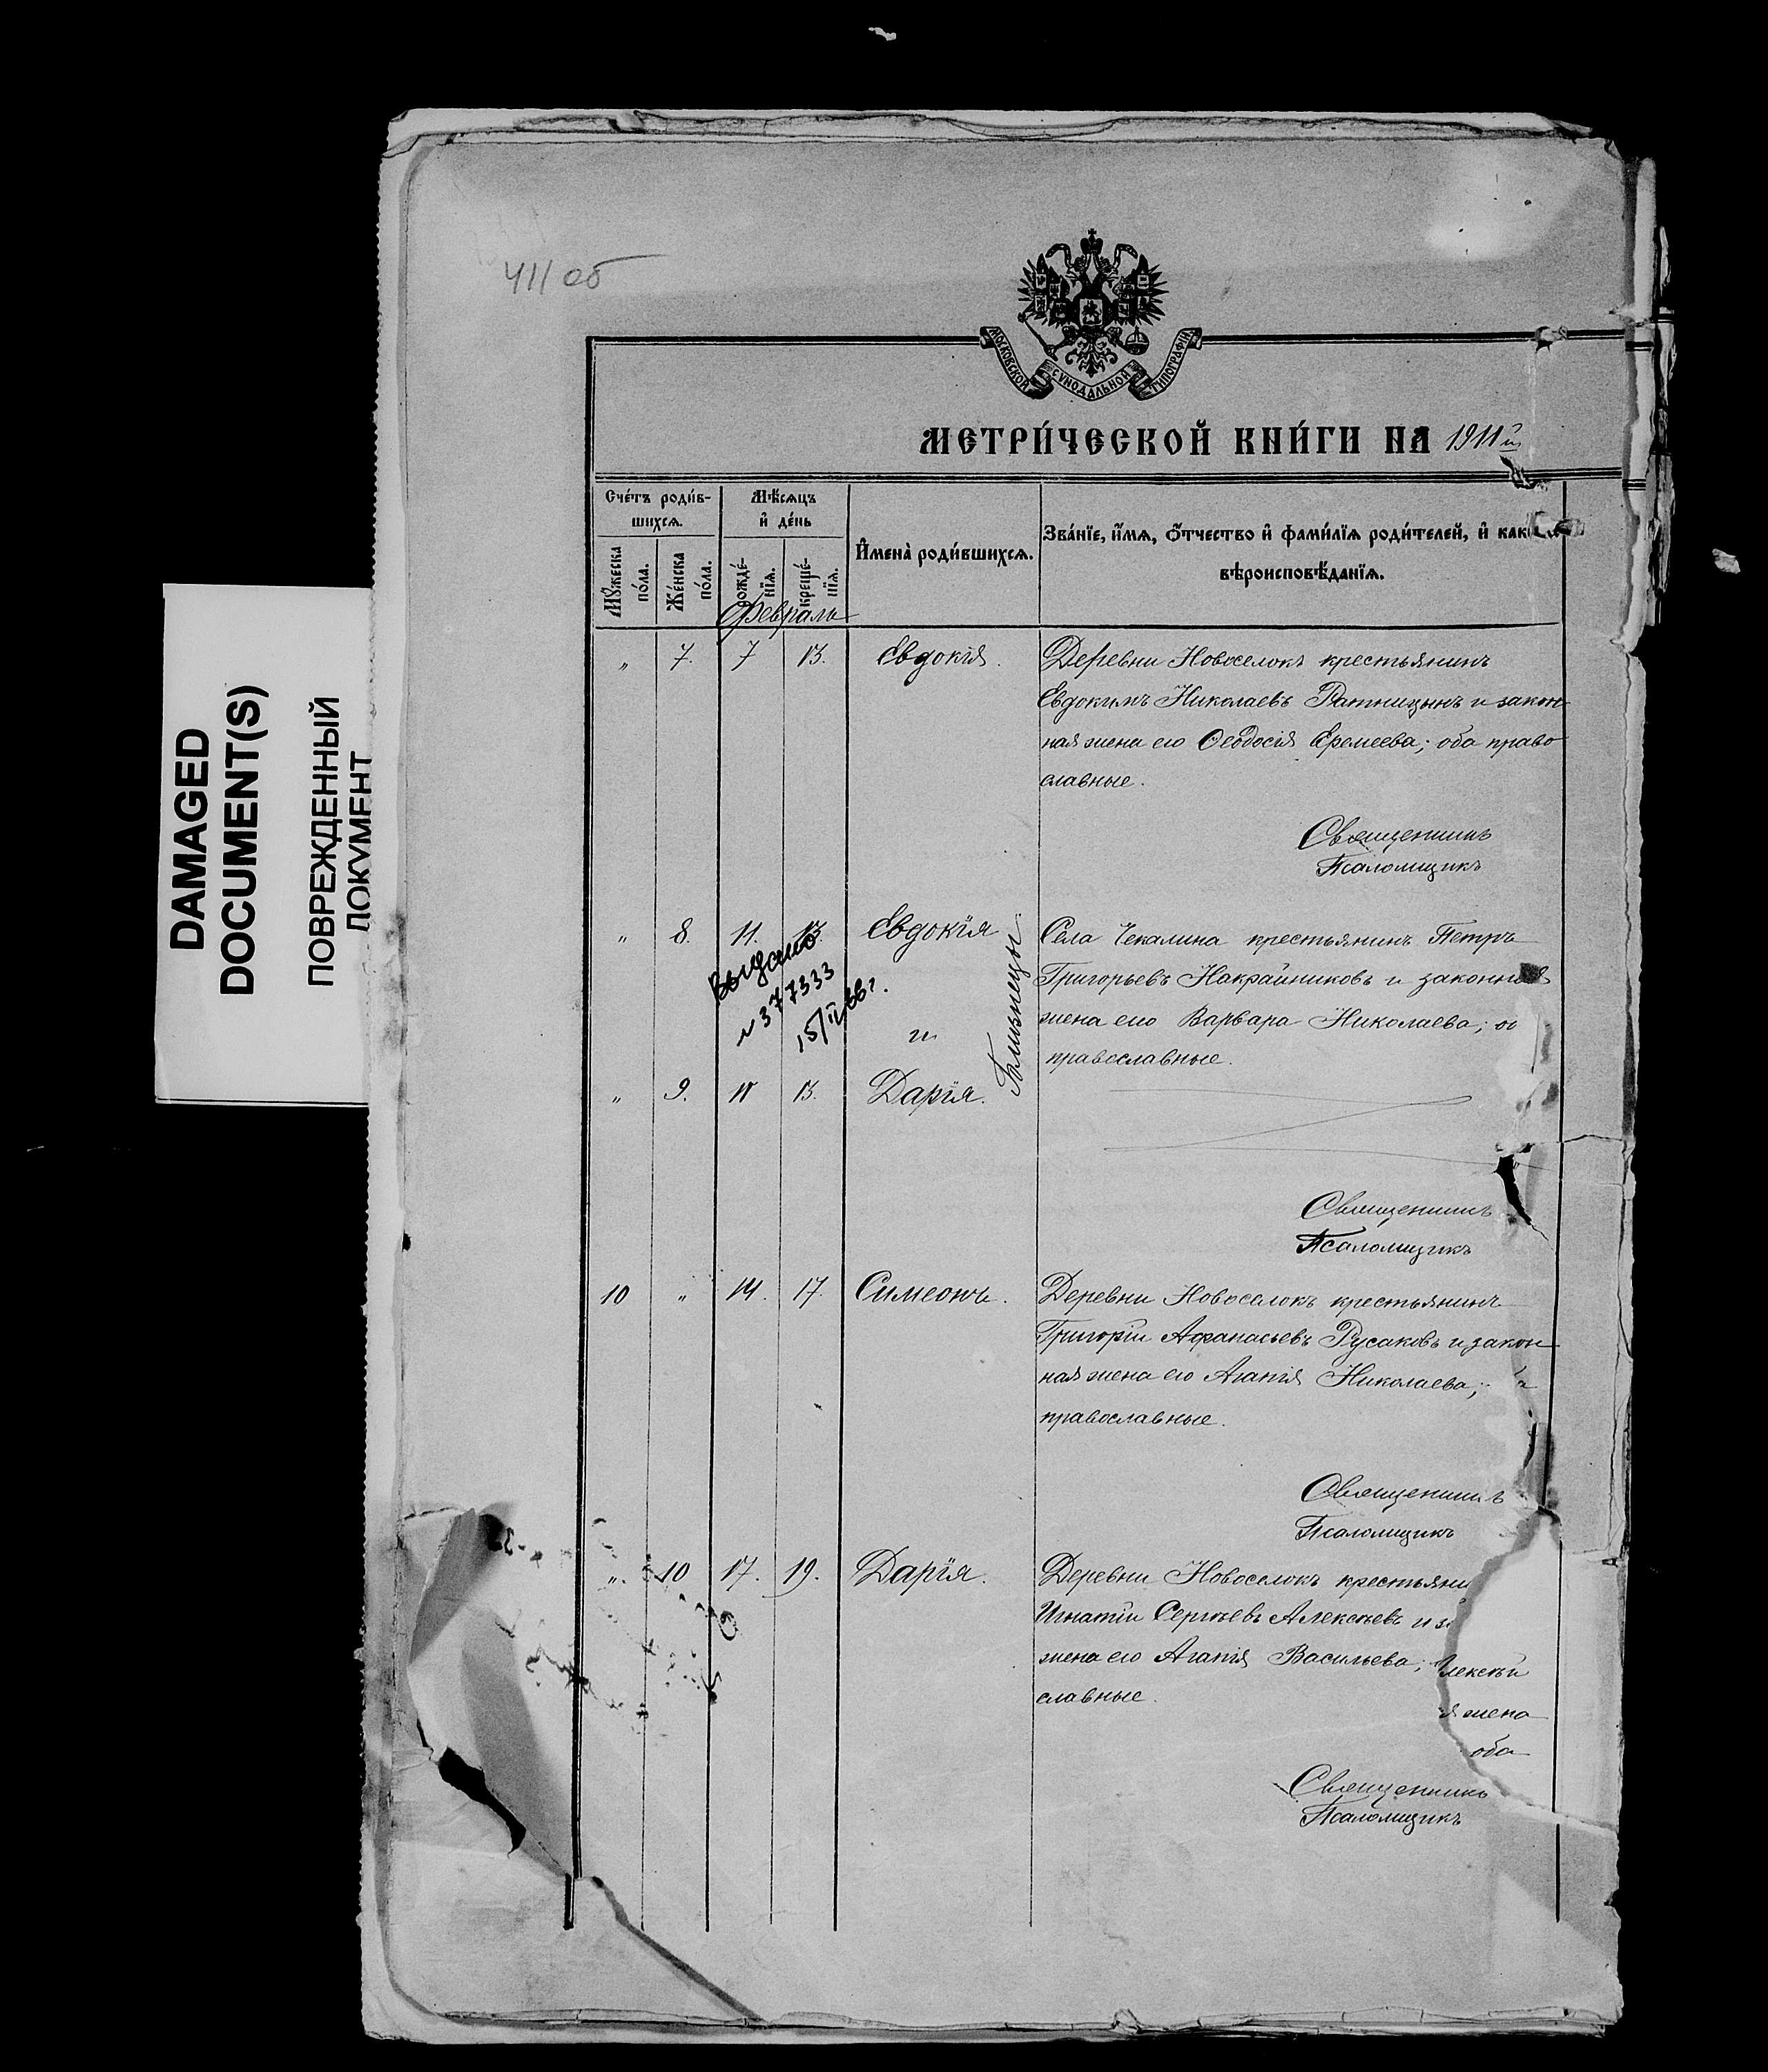 DAMAGED
DOCUMENT(S)
ПОВРЕЖДЕННЫЙ
ДОКУМЕНТ
411 об
МОСКОВСКОЙ СѴНОДАЛЬНОЙ ТИПОГРАФІИ
МЕТРИ́ЧЕСКОЙ КНИ́ГИ НА 1911й
Сче́тъ роди́в-
шихся.
Мѣ́сяцъ
и де́нь
Мꙋ́жеска
по́ла.
Же́нска
по́ла.
рожде́-
нїя.
креще́-
нїя.
Имена̀ роди́вшихся.
Зва́нїе, и́мя, о́тчество и фами́лїя роди́телей, и как
вѣроисповѣ́данїя.
Февраль
" 7. 7 13. Евдокія. Деревни Новоселокъ крестьянинъ
Евдокимъ Николаевъ Ратницынъ и закон-
ная жена его Ѳеодосія Еремеева; оба право-
славные.
Священникъ
Псаломщикъ
" 8. 11. 13. Евдокія Села Чекалина крестьянинъ Петръ
Григорьевъ Накрайниковъ и законная
жена его Варвара Николаева; об
православные.
Выдано
№377333
15/II 66г.
и
Близнецы
" 9. 11 13. Дарія.
Священникъ
Псаломщикъ
10 " 14. 17. Симеонъ. Деревни Новоселокъ крестьянинъ
Григорій Афанасьевъ Русаковъ и закон-
ная жена его Агапія Николаева; а
православные.
Священникъ
Псаломщикъ
" 10 17. 19. Дарія. Деревни Новоселокъ крестьяни
Игнатій Сергѣевъ Алексѣевъ и за
жена его Агапія Васильева;
славные.
лексѣй
я жена
оба
Священникъ
Псаломщикъ